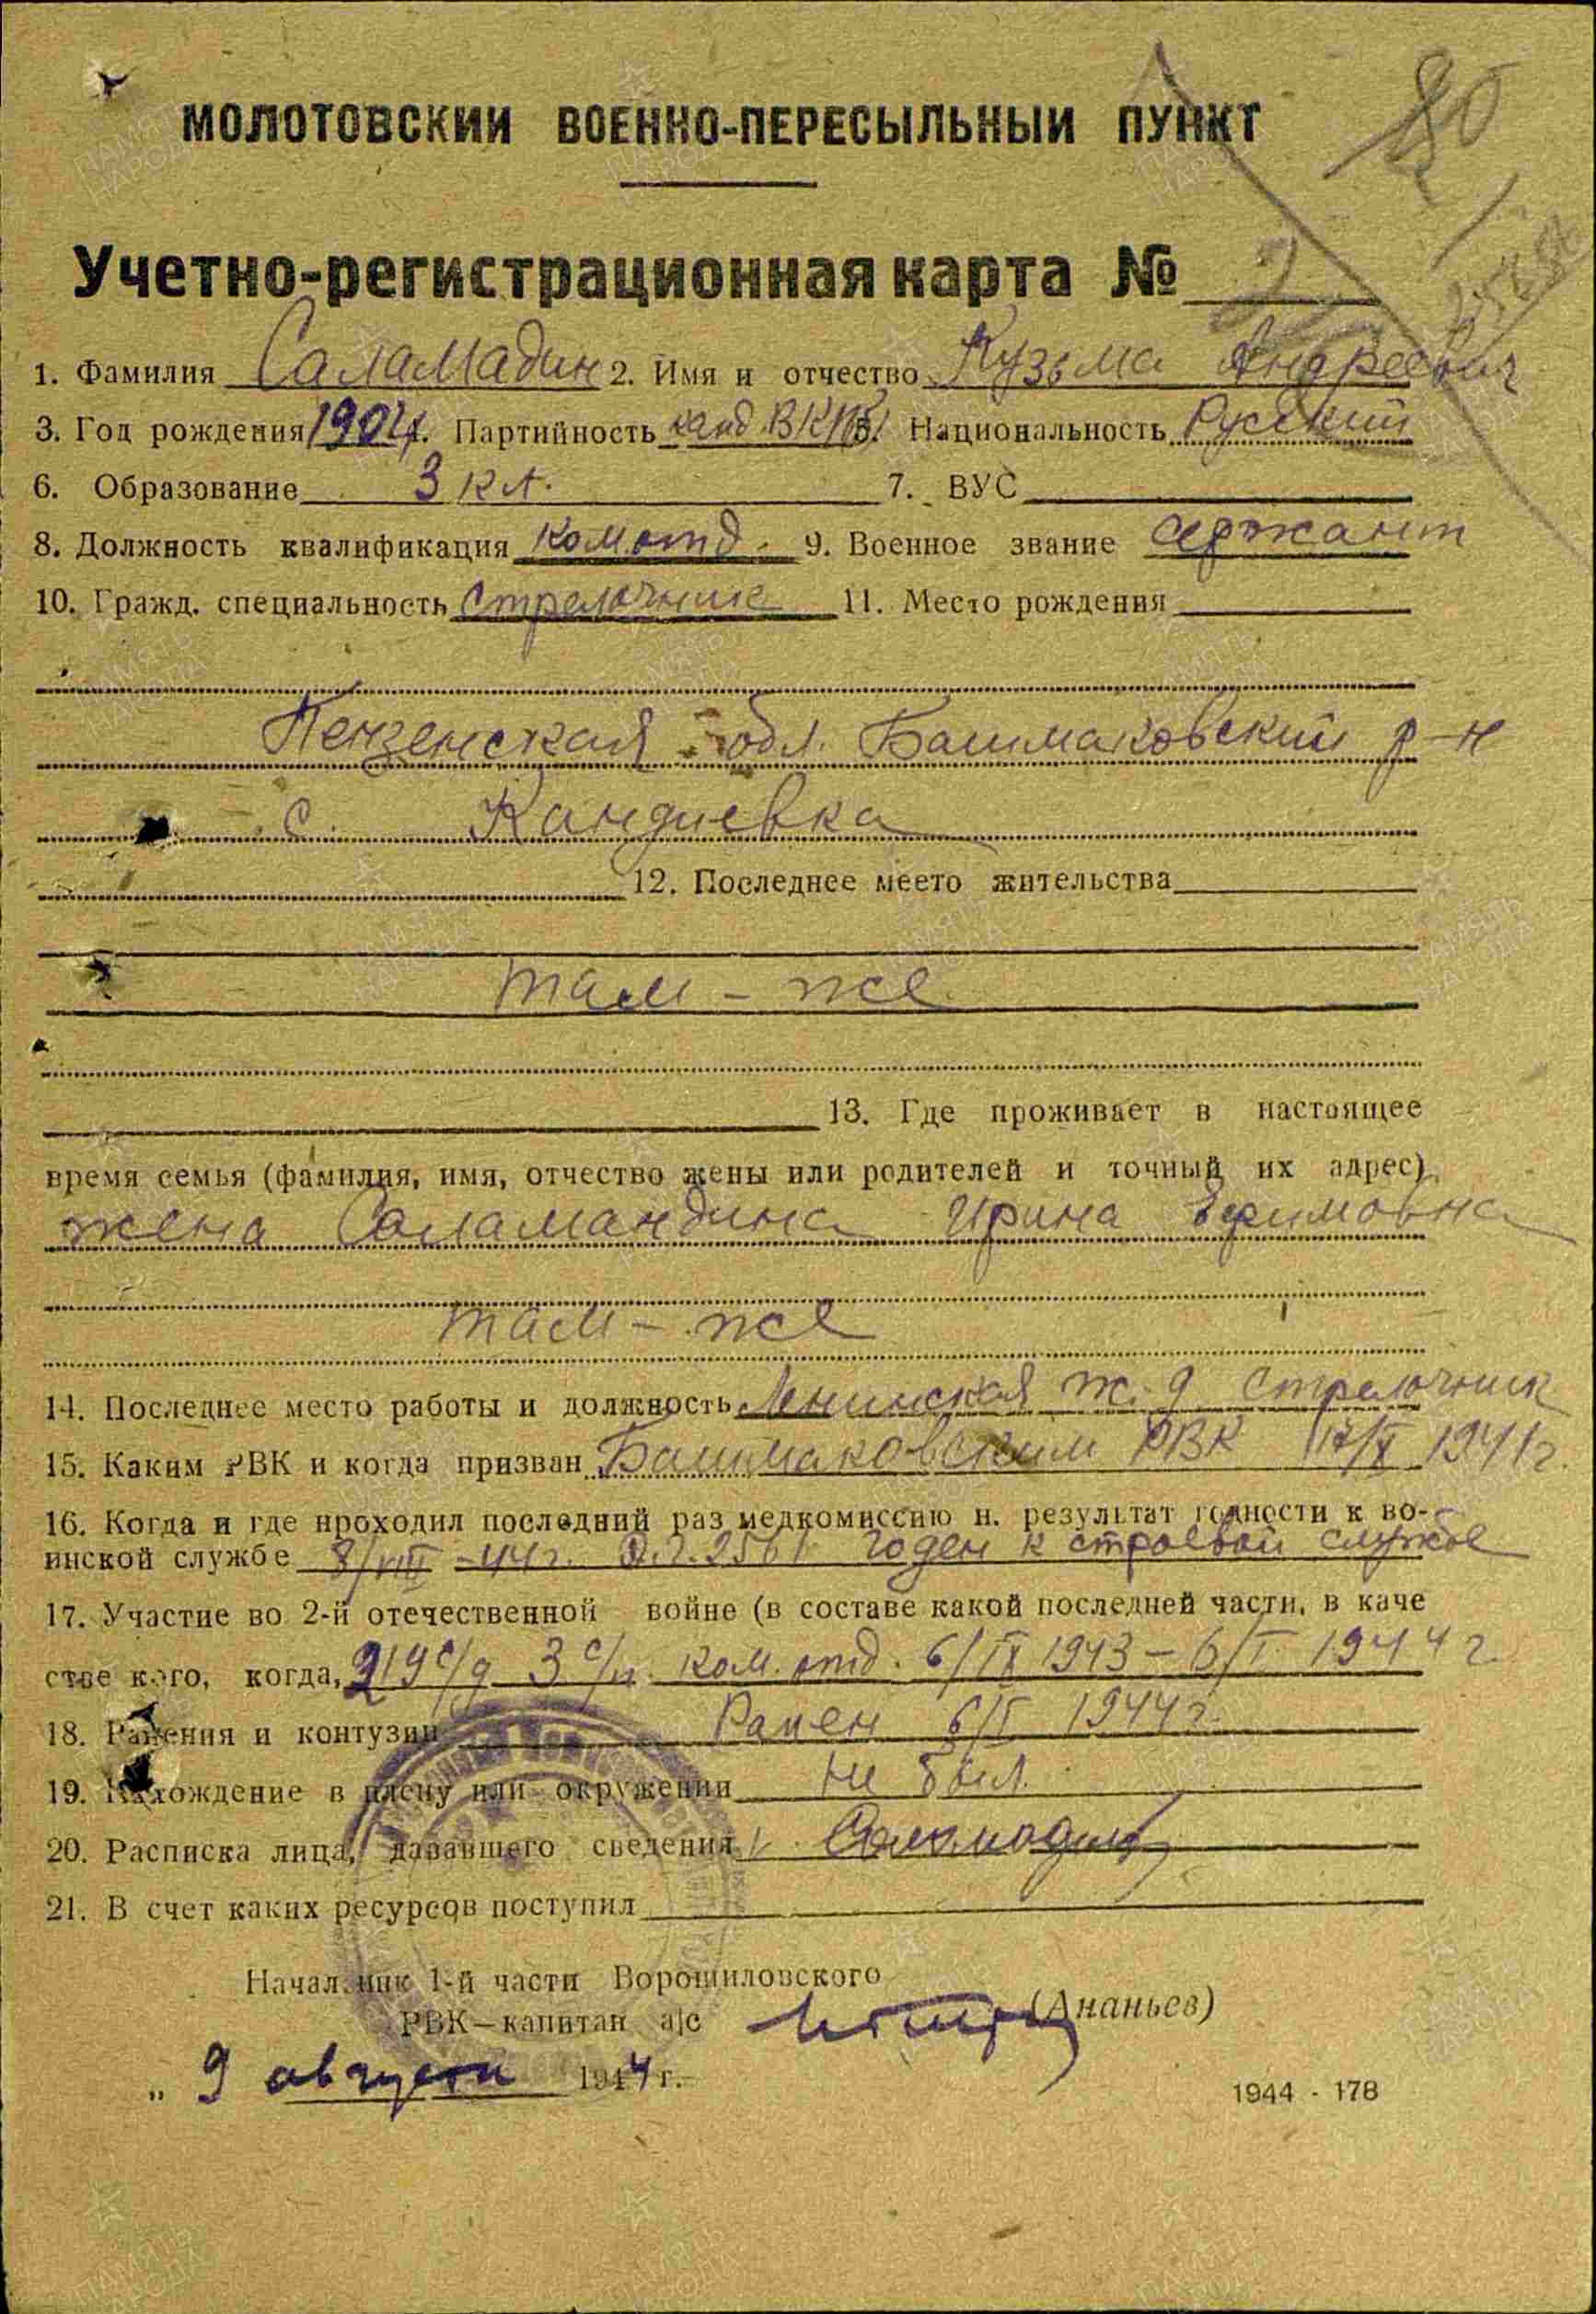 МОЛОТОВСКИЙ ВОЕННО-ПЕРЕСЫЛЬНЫЙ ПУНКТ
80
Учетно-регистрационная карта №
1. Фамилия Саламадин 2. Имя и отчество Кузьма Андреевич
3. Год рождения 1904 4. Партийность канд. ВКП(б) 5. Национальность Русский
6. Образование 3 кл. 7. ВУС
8. Должность квалификация ком. отд. 9. Военное звание сержант
10. Гражд. специальность Стрелочник 11. Место рождения
Пензенская обл. Башмаковский р-н
с. Кандиевка
12. Последнее место жительства
там-же
13. Где проживает в настоящее
время семья (фамилия, имя, отчество жены или родителей и точный их адрес)
жена Саламандина Ирина Ефимовна
там-же
14. Последнее место работы и должность Ленинская ж.д. стрелочник
15. Каким РВК и когда призван Башмаковским РВК 17/X 1941г.
16. Когда и где проходил последний раз медкомиссию и. результат годности к во-
инской службе 8/VIII-44г. 2561 годен к строевой службе
17. Участие во 2-й отечественной войне (в составе какой последней части, в каче
стве кого, когда, 219 с/д 3 с/п. ком. отд. 6/IX 1943-6/I 1944г.
18. Ранения и контузии Ранен 6/I 1944г.
19. Нахождение в плену или окружении не был
20. Расписка лица, дававшего сведения Саламадин
21. В счет каких ресурсов поступил
Начальник 1-й части Ворошиловского
РВК—капитан а|с (Ананьев)
„ 9 августа 1944 г.
1944 - 178
ПАМЯТЬ НАРОДА